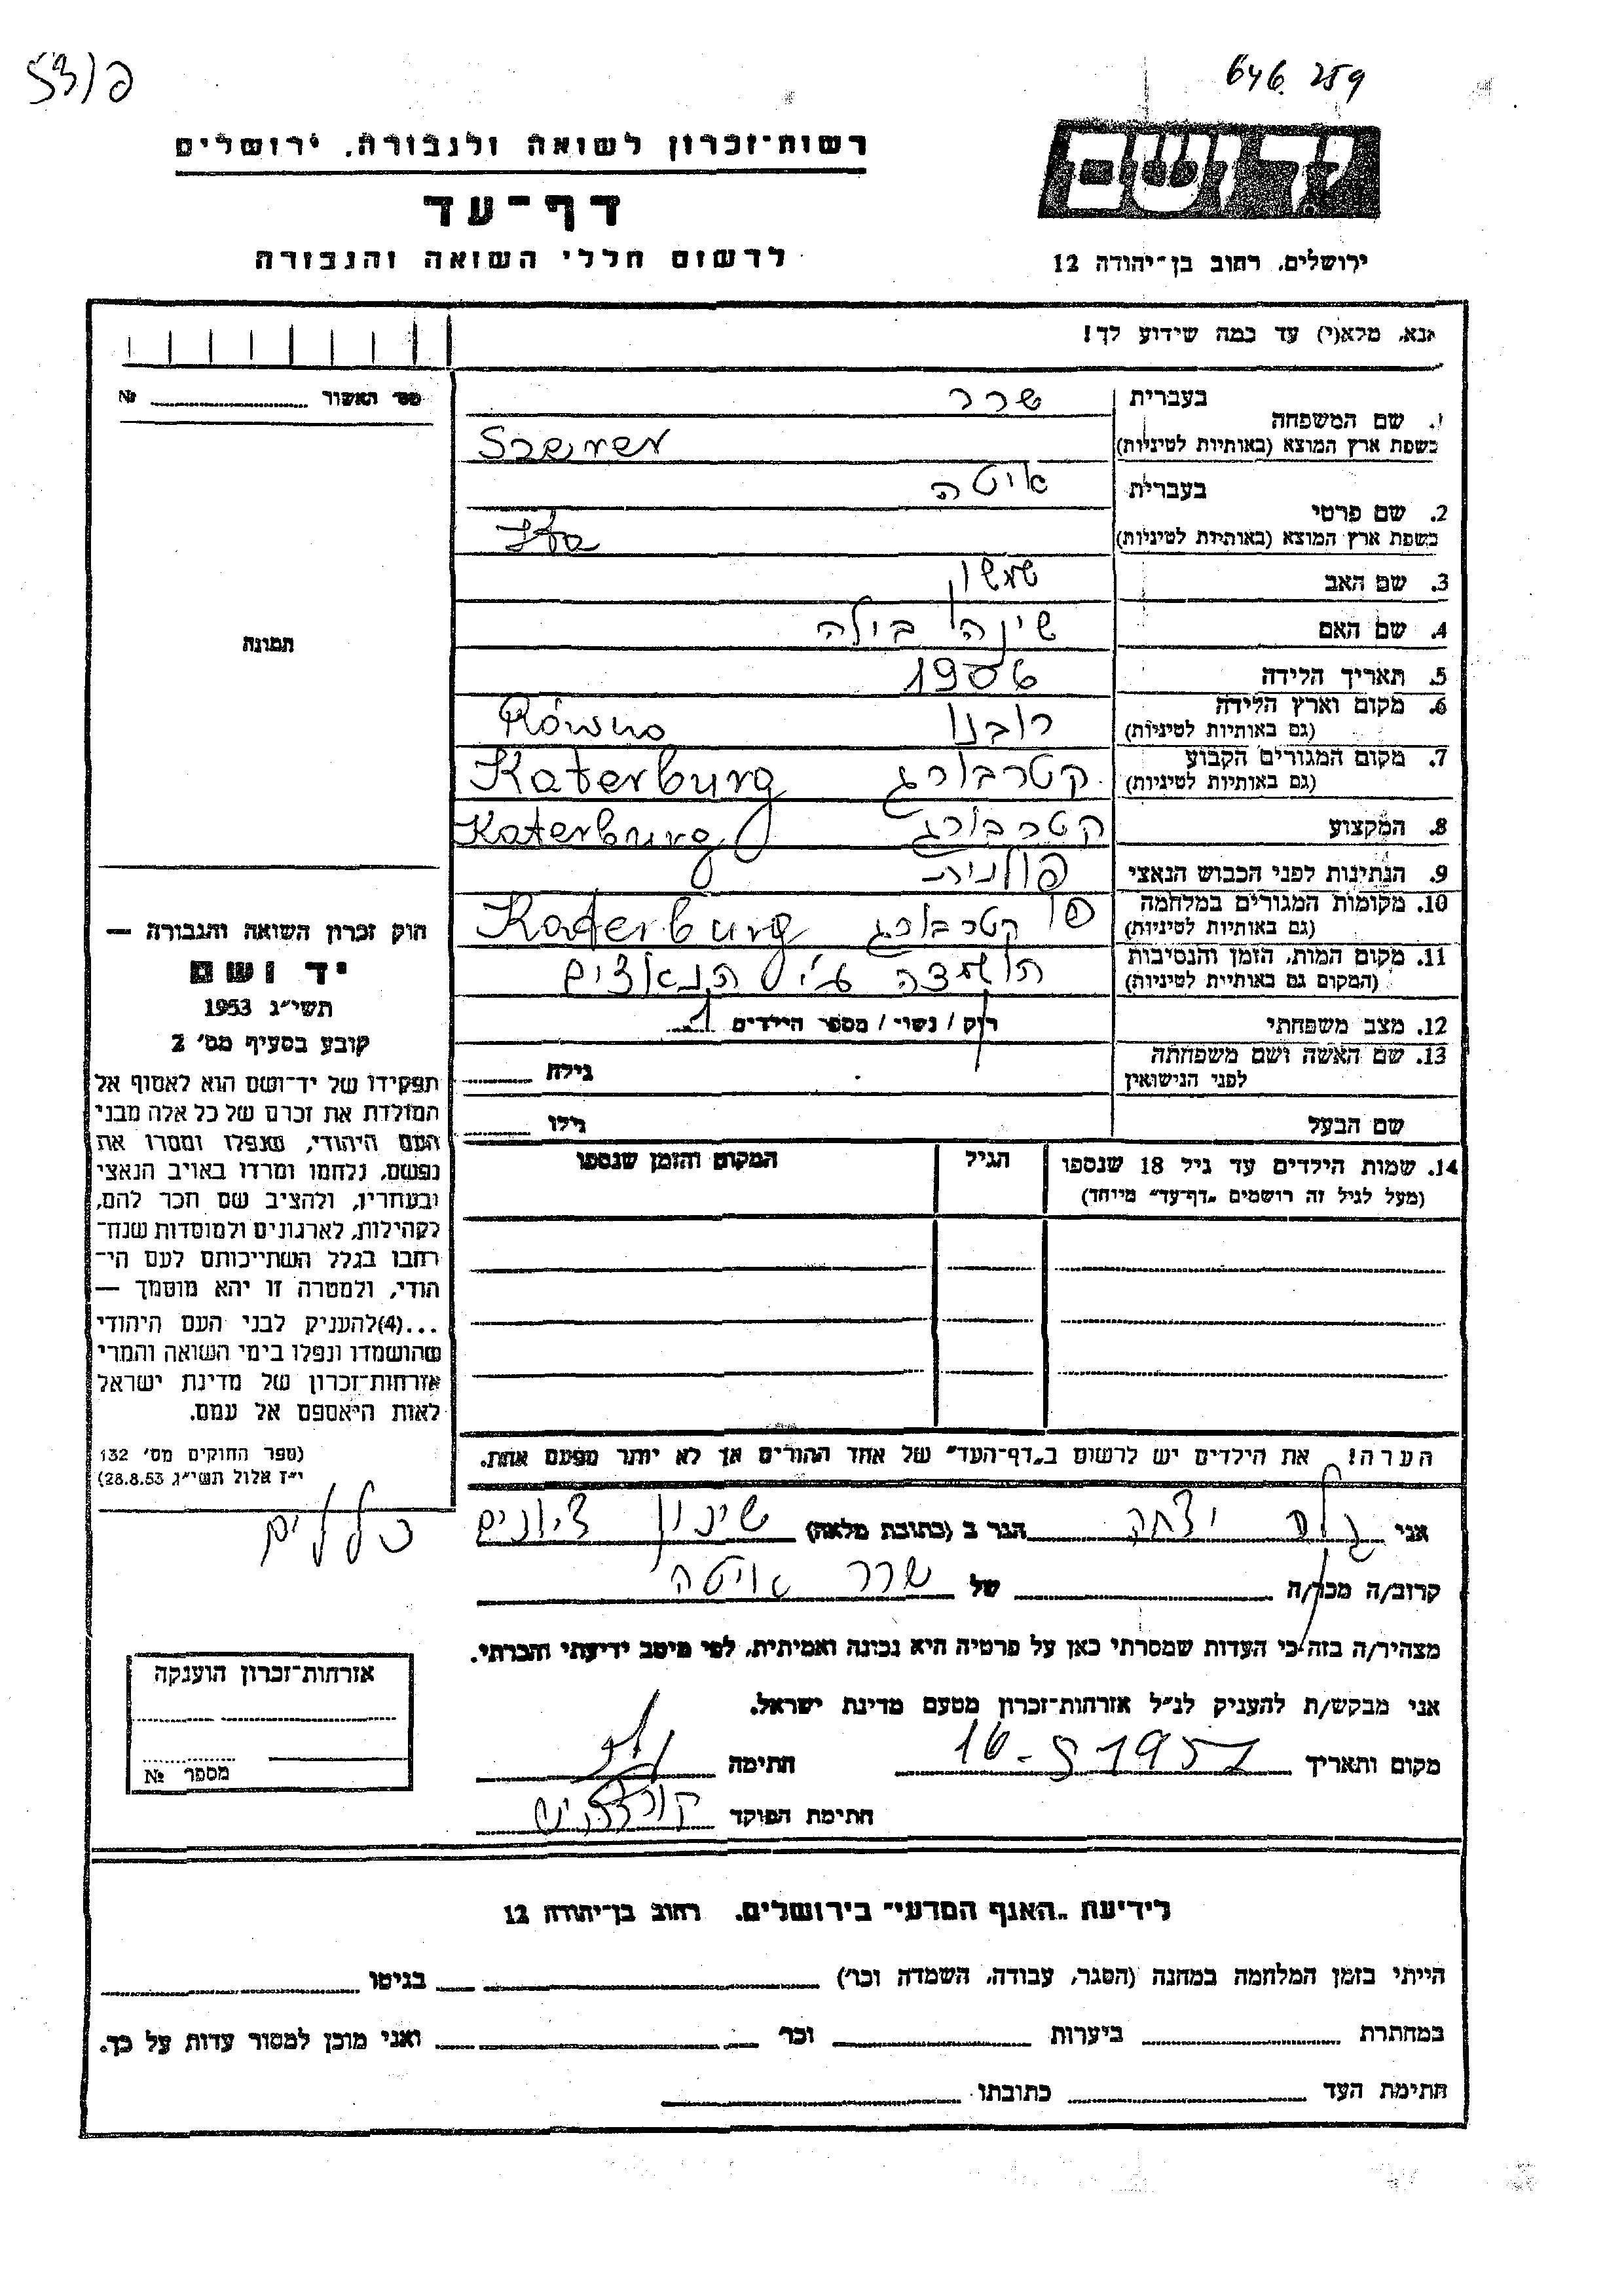 646.259
53/פ
רשות־זכרון לשואה ולגבורה, ירושלים
יד ושם
דף־עד
לרשום חללי השואה והגבורה
ירושלים, רחוב בן־יהודה 12
אנא, מלא(י) עד כמה שידוע לך!
מס׳ האשור № 
1. שם המשפחה בעברית שרר
בשפת ארץ המוצא (באותיות לטיניות) Szerer
2. שם פרטי בעברית איטה
בשפת ארץ המוצא (באותיות לטיניות) Ita
3. שם האב שמשון
4. שם האם שינה ביילה
5. תאריך הלידה 1906
6. מקום וארץ הלידה (גם באותיות לטיניות) רובנו Równo
7. מקום המגורים הקבוע (גם באותיות לטיניות) קטרבורג Katerburg
8. המקצוע קטרבורג Katerburg
9. הנתינות לפני הכבוש הנאצי פולנית
10. מקומות המגורים במלחמה (גם באותיות לטיניות) קטרבורג Katerburg
11. מקום המות, הזמן והנסיבות (המקום גם באותיות לטיניות) הושמדה ע״י הנאצים
12. מצב משפחתי רוק / נשוי / מספר הילדים 1
13. שם האשה ושם משפחתה לפני הנישואין גילה
שם הבעל גילו
14. שמות הילדים עד גיל 18 שנספו הגיל המקום והזמן שנספו
(מעל לגיל זה רושמים "דף־עד" מיוחד)
הערה! את הילדים יש לרשום ב"דף־העד" של אחד ההורים אך לא יותר מפעם אחת.
תמונה
חוק זכרון השואה והגבורה —
יד ושם
תשי״ג 1953
קובע בסעיף מס׳ 2
תפקידו של יד־ושם הוא לאסוף אל
המולדת את זכרם של כל אלה מבני
העם היהודי, שנפלו ומסרו את
נפשם, נלחמו ומרדו באויב הנאצי
ובעוזריו, ולהציב שם וזכר להם,
לקהילות, לארגונים ולמוסדות שנח־
רבו בגלל השתייכותם לעם הי־
הודי, ולמטרה זו יהא מוסמך —
...(4)להעניק לבני העם היהודי
שהושמדו ונפלו בימי השואה והמרי
אזרחות־זכרון של מדינת ישראל
לאות היאספם אל עמם.
(ספר החוקים מס׳ 132
י״ז אלול תשי״ג 28.8.53)
אני הגר ב (כתובת מלאה) שיכון
קרוב/ה מכר/ה של שרר איטה
מצהיר/ה בזה כי העדות שמסרתי כאן על פרטיה היא נכונה ואמיתית, לפי מיטב ידיעתי והכרתי.
אני מבקש/ת להעניק לנ״ל אזרחות־זכרון מטעם מדינת ישראל.
מקום ותאריך 16-5 1957 חתימה
חתימת הפוקד
אזרחות־זכרון הוענקה
מספר №
לידיעת "האגף המדעי" בירושלים, רחוב בן־יהודה 12
הייתי בזמן המלחמה במחנה (הסגר, עבודה, השמדה וכו׳) בגיטו
במחתרת ביערות וכו׳ ואני מוכן למסור עדות על כך.
חתימת העד כתובתו